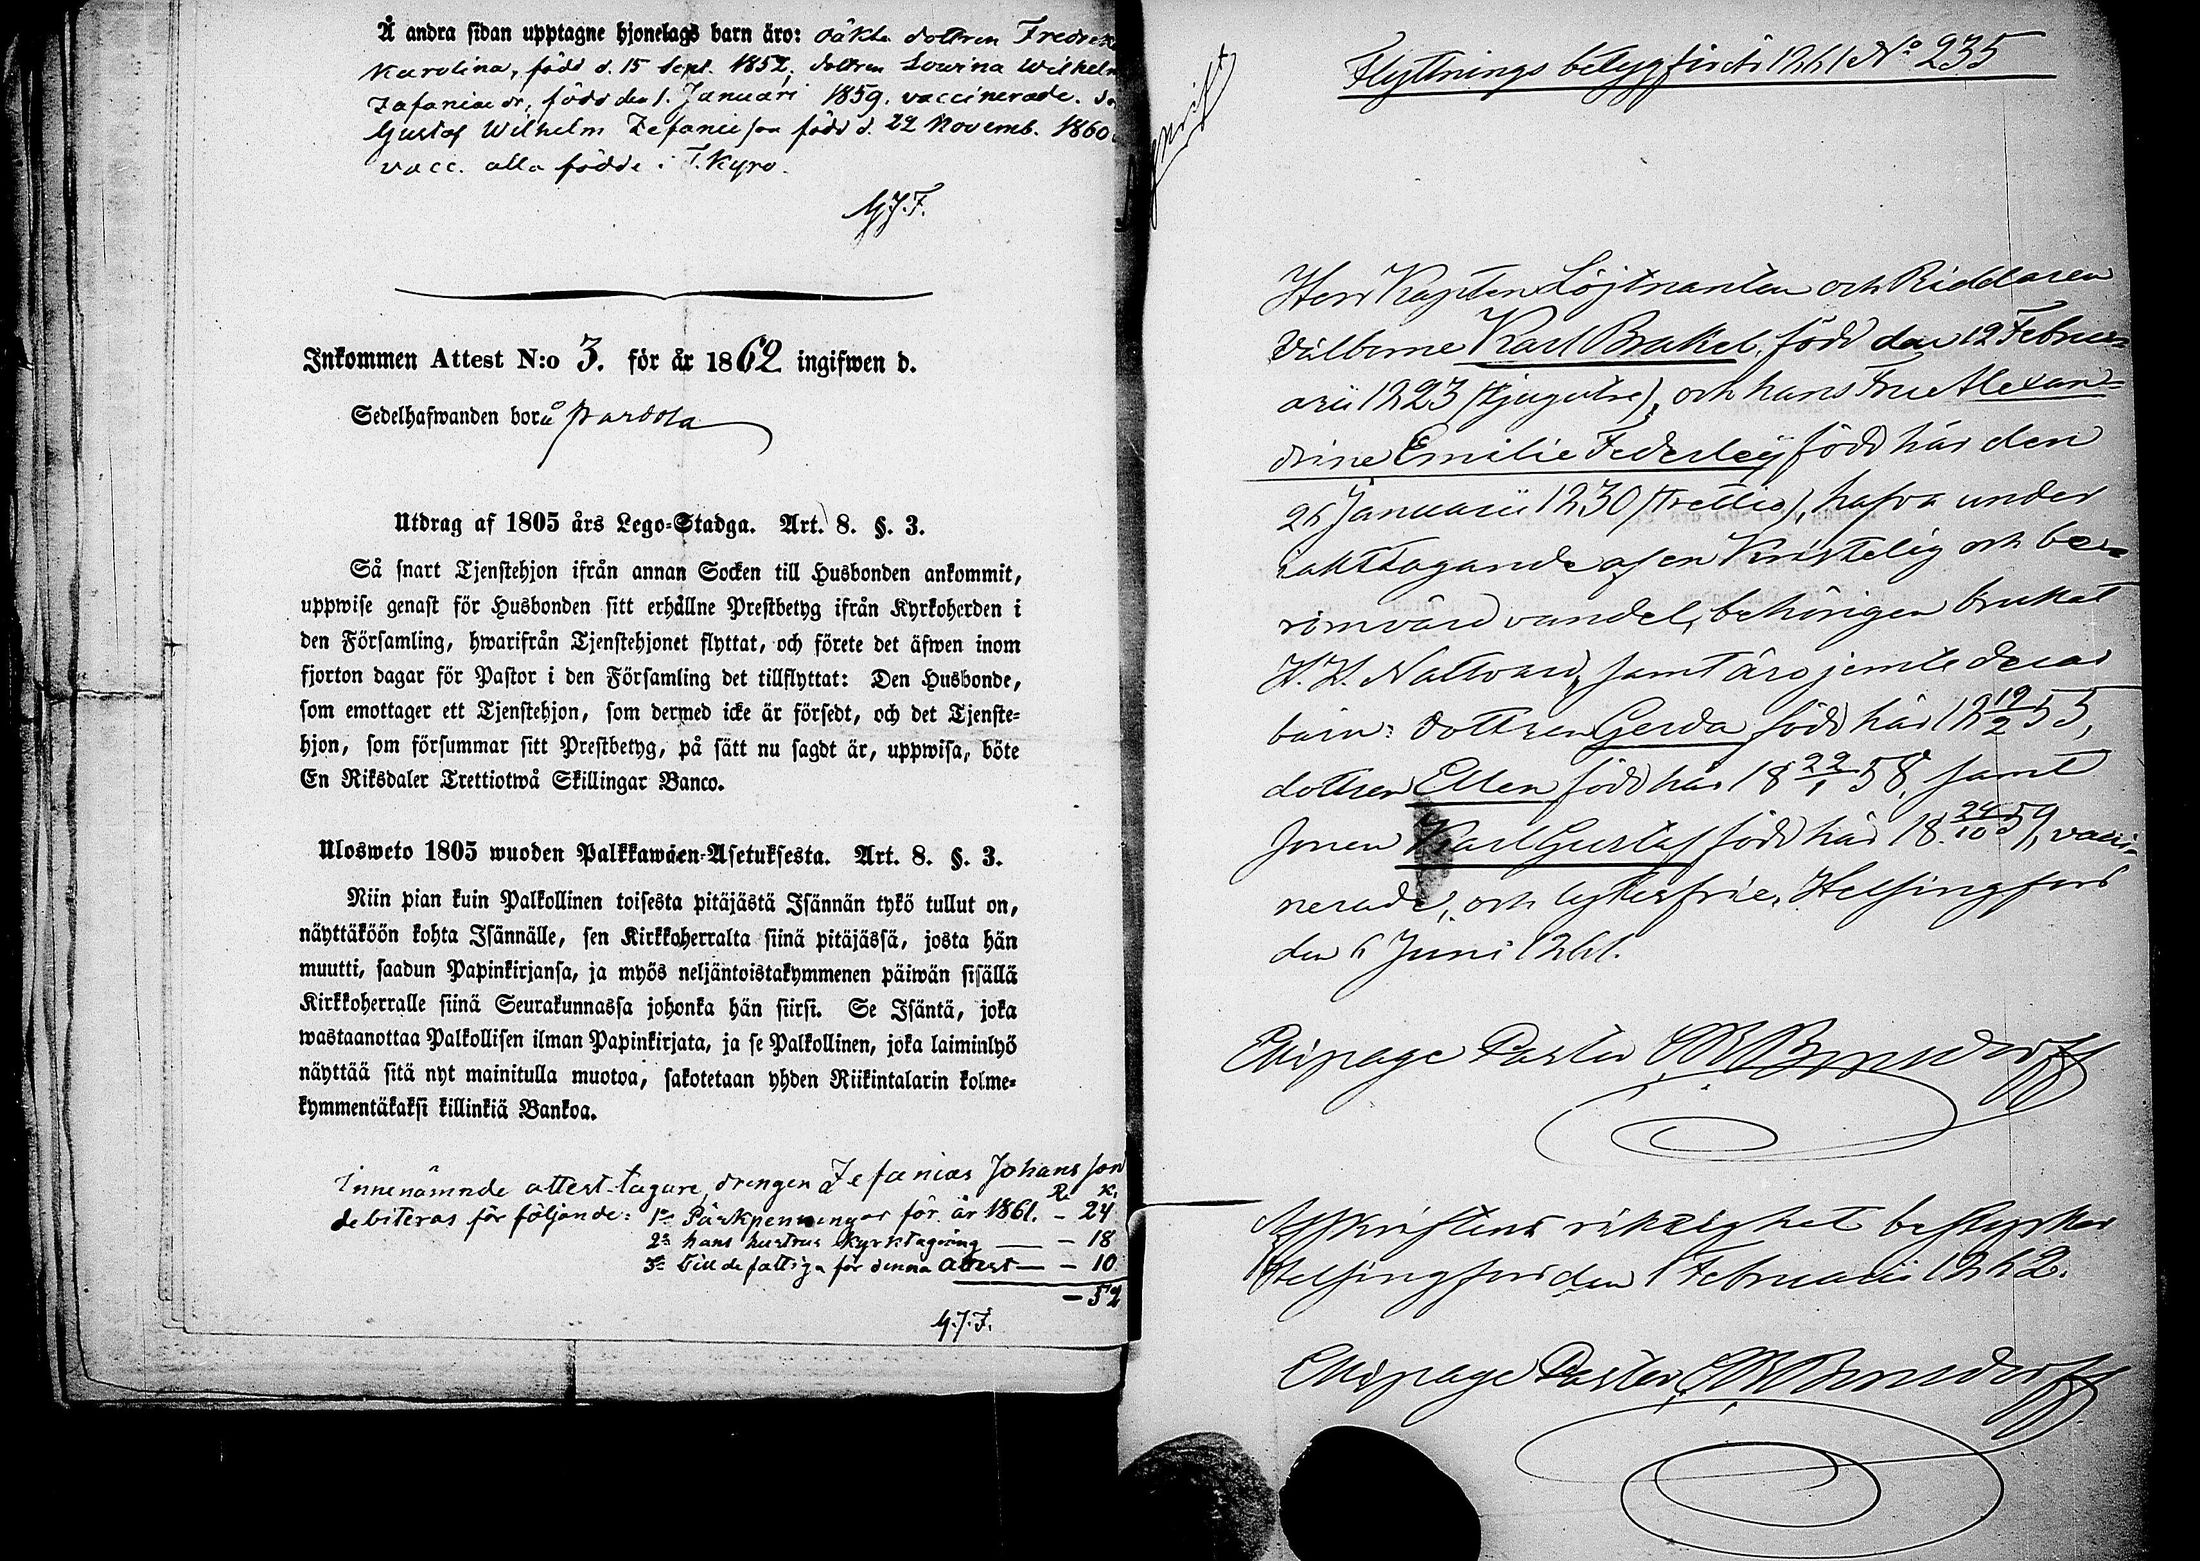 Å andra sidan upptagne hjonelags barn äro: oäkta dottren Fredrek
Karolina, född d. 15 Sept. 1852, dottren Lowina Wilhelm
Zafaniae dr, född den 1. Januari 1859. vaccinerade. S.
Gustaf Wilhelm Zefaniæson född d. 22 Novemb. 1860
vacc. alla födde i T. Kyro.
G.J.F.
Inkommen Attest N:o 3. för år 1862 ingifwen d.
Sedelhafwanden bor å
Utdrag af 1805 års Lego-Stadga. Art. 8. §. 3.
Så snart Tjenstehjon ifrån annan Socken till Husbonden ankommit,
uppwise genast för Husbonden sitt erhållne Prestbetyg ifrån Kyrkoherden i
den Församling, hwarifrån Tjenstehjonet flyttat, och förete det äfwen inom
fjorton dagar för Pastor i den Församling det tillflyttat: Den Husbonde,
som emottager ett Tjenstehjon, som dermed icke är försedt, och det Tjenste-
hjon, som försummar sitt Prestbetyg, på sätt nu sagdt är, uppwisa, böte
En Riksdaler Trettiotwå Skillingar Banco.
Ulosweto 1805 wuoden Palkkawäen-Asetuksesta. Art. 8. §. 3.
Niin pian kuin Palkollinen toisesta pitäjästä Isännän tykö tullut on,
näyttäköön kohta Isännälle, sen Kirkkoherralta siinä pitäjässä, josta hän
muutti, saadun Papinkirjansa, ja myös neljäntoistakymmenen päiwän sisällä
Kirkkoherralle siinä Seurakunnassa johonka hän siirsi. Se Isäntä, joka
wastaanottaa Palkollisen ilman Papinkirjata, ja se Palkollinen, joka laiminlyö
näyttää sitä nyt mainitulla muotoa, sakotetaan yhden Riikintalarin kolme-
kymmentäkaksi killinkiä Bankoa.
Innenämnde attest-tagare, drengen Zefanias Johansson
R. K.
debiteras för följande: 1o Påskpenningar för år 1861. – 24
2o hans hustrus kyrktagning — – 18
3o till de fattiga för denna attest — – 10
– 52
G.J.F.
Flyttnings betyg för år 1861 No 235
Herr Kapten Löjtnanten och Riddaren
Välborne Karl Brakel, född den 12 Febru-
arii 1823 (tjugutre), och hans Fru Alexan-
drine Emilie Federley född här den
26 Januarii 1830 (trettio), hafva under
iakttagande af en Kristelig och be-
römvärd vandel, behörigen brukat
H. H. Nattvard, samt äro jemte deras
barn: dottren Gerda född här 18 19/2 55,
dottren Ellen född här 18 22/1 58, samt
sonen Karl Gustaf född här 18 24/10 59, vacci-
nerade, och lytesfrie. Helsingfors
den 6 Juni 1861.
Ekipage Pastor
Afskriftens riktighet bestyrker
Helsingfors den 1 Februarii 1862.
Ekipage Pastor